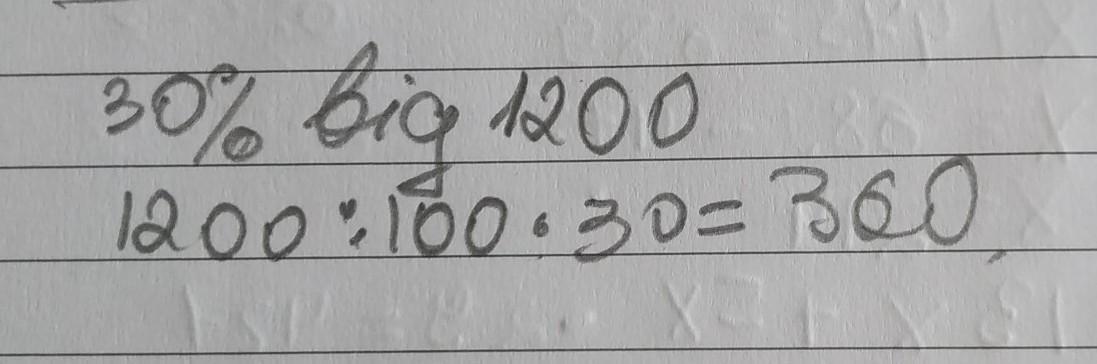 30% від 1200
1200 : 100 · 30 = 360